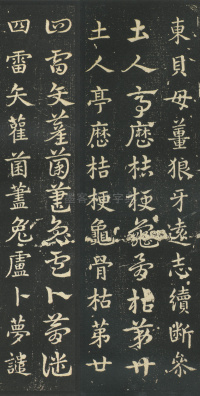 東貝母薑狼牙遠志續斷參
土人亭歷桔梗龜骨枯第廿
土人亭歷桔梗龜骨枯第廿
四雷矢雚菌藎兔盧卜夢譴
四雷矢雚菌藎兔盧卜夢譴